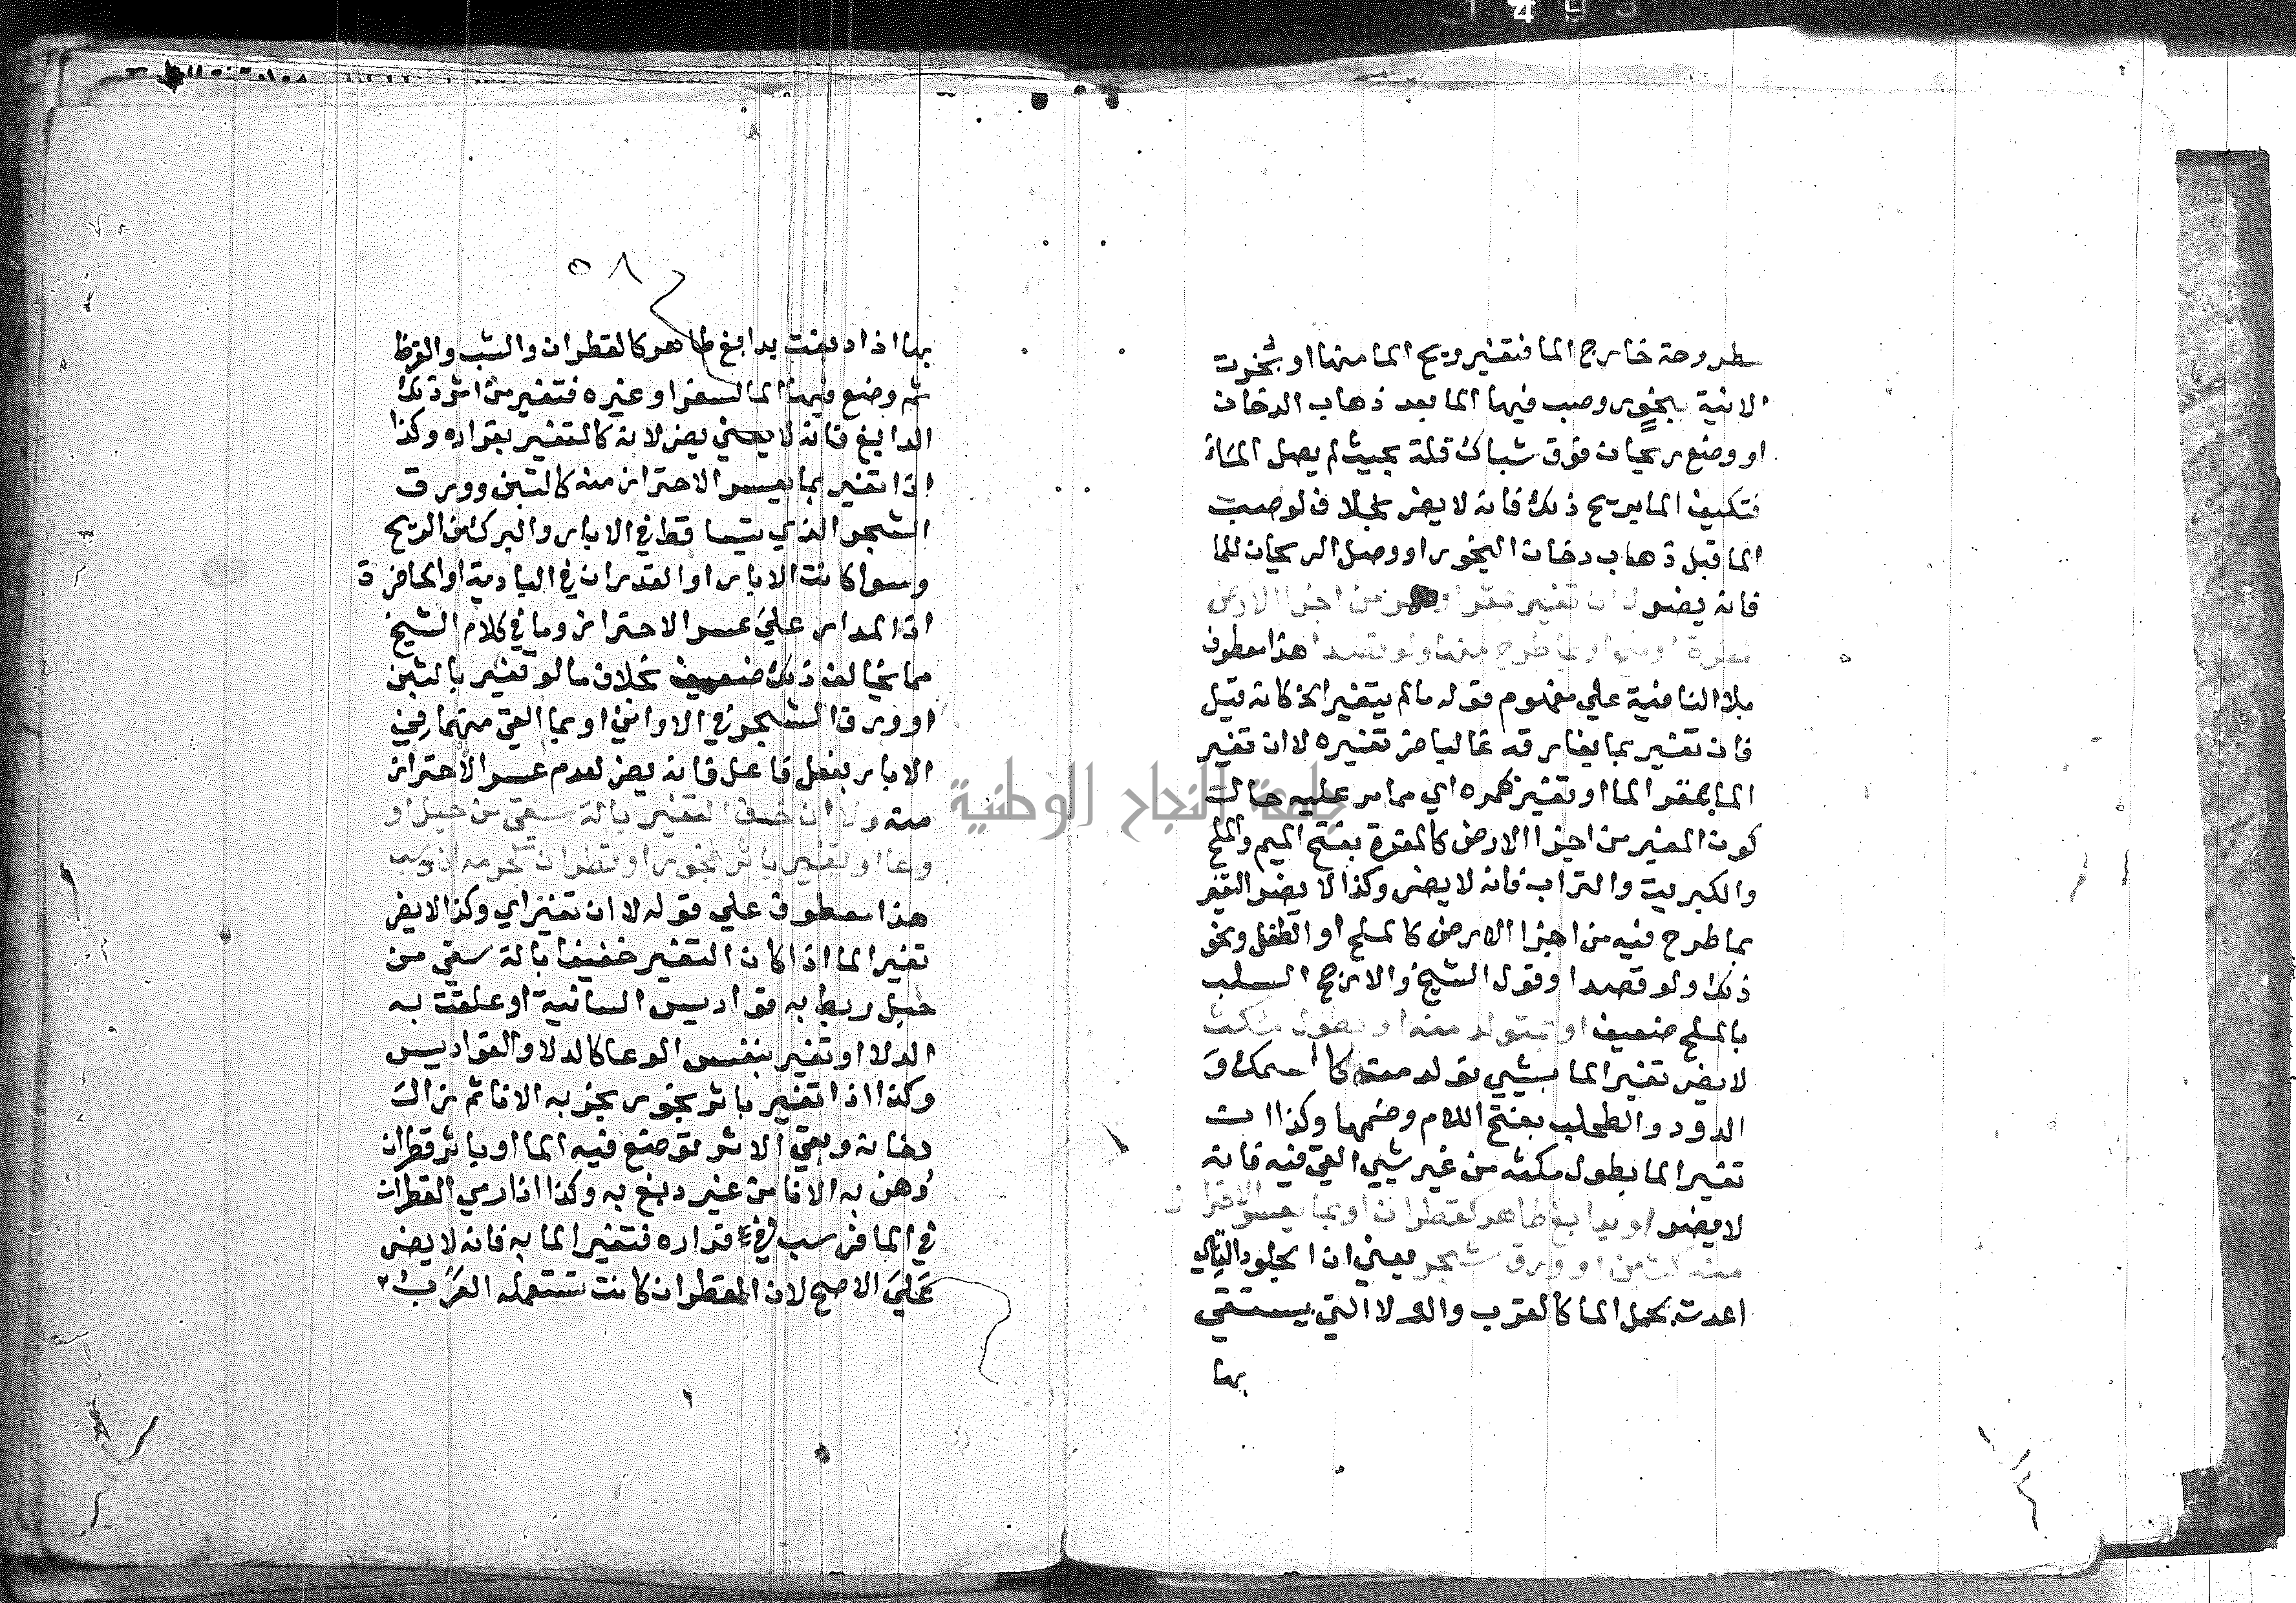 مطروحة خارج الما فتغير ريح الما منها او بخرت
الانية ببخور وصب فيها الما بعد ذهاب الدخان
او وضع ريحان فوق شباك قلة بحيث لم يصل الماء
فتكيف الما بريح ذلك فانه لا يضر بخلاف لو صب
الما قبل ذهاب دخان البخور او وصل الريحان للما
فانه يضر لا ان تغير بمقرا او ممر من اجزا الارض
كمغرة او ملح او بما طرح منها ولو قصدا هذا معطوف
بلا النافية علي مفهوم قوله ما لم يتغير الخ كانه قيل
فان تغير بما يفارقه غالبا ضر تغيره لا ان تغير
الما بمقر الما او تغير بممره اي مما مر عليه حالت
كون المغير من اجزا الارض كالمغرة بفتح الميم والملح
والكبريت والتراب فانه لا يضر وكذا لا يضر التغير
بما طرح فيه من اجزا الارض كالملح او الطفل ونحو
ذلك ولو قصدا وقول الشيخ والارجح السلب
بالملح ضعيف او بمتولد منه او بطول مكث
لا يضر تغير الما بشيي تولد منه كالسمك و
الدود والطحلب بفتح اللام وضمها وكذا ان
تغير الما بطول مكثه من غير شيي القي فيه فانه
لا يضر او بدابغ طاهر كقطران او بما يعسر الاحتراز
منه كتبن او ورق شجر يعني ان الجلود التي
اعدت بحمل الما كالقرب والدلا التي يستقي
بها
٥٨
بها اذا دبغت بدابغ طاهر كالقطران والشب والقرظ
ثم وضع فيها الما لسفر او غيره فتغير من اثر ذلك
الدابغ فانه لا يعني يضر لانه كالمتغير بقراره وكذا
اذا تغير بما يعسر الاحتراز منه كالتبن وورق
الشجر الذي يتساقط في الابار والبرك من الريح
وسوا كانت الابار او الغدران في البادية او الحاضرة
اذ المدار علي عسر الاحتراز وما في كلام الشيخ
مما يخالف ذلك ضعيف بخلاف ما لو تغير بالتبن
او ورق الشجر في الاواني او بما القي منهما في
الابار بفعل فاعل فانه يضر لعدم عسر الاحتراز
منه ولا ان خف التغير بالة سقي من حبل او
وعا او تغير باثر بخور او قطران كجرمه ان رسب
هذا معطوف علي قوله لا ان تغير اي وكذا لا يضر
تغير الما اذا كان التغير خفيفا بالة سقي من
حبل ربط به قواديس السانية او علقت به
الدلا او تغير بنفس الوعا كالدلا والقواديس
وكذا اذا تغير باثر بخور بخر به الانا ثم زالت
دخانه وبقي الاثر فوضع فيه الما او باثر قطران
دهن به الانا من غير دبغ به وكذا اذا رمي القطران
في الما فرسب في قراره فتغير الما به فانه لا يضر
علي الاصح لان القطران كانت تستعمله العرب
جامعة النجاح الوطنية